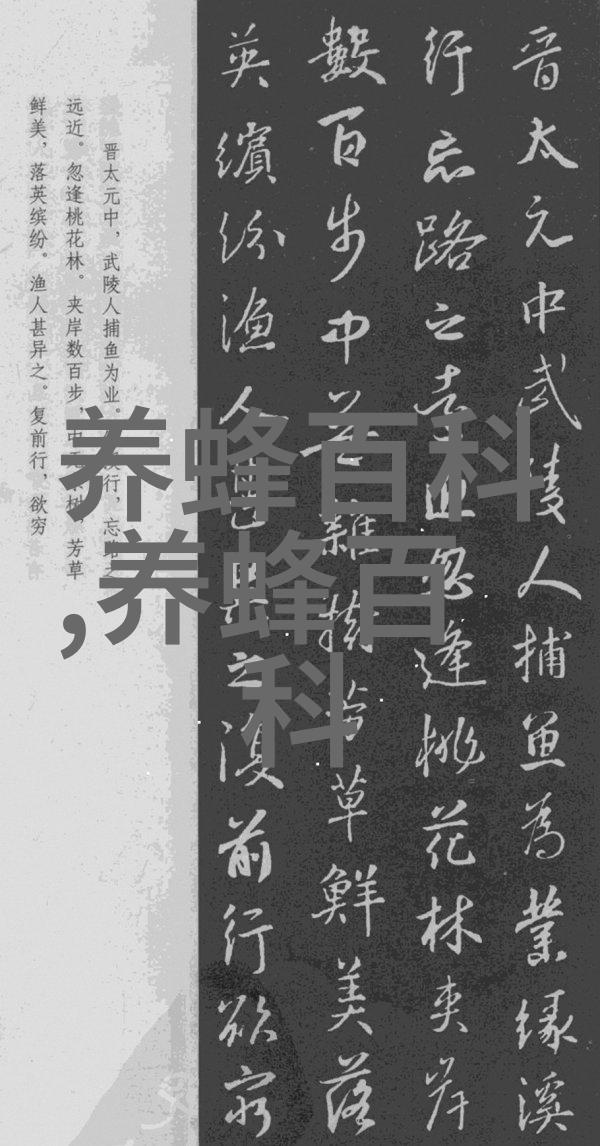 晋太元中武陵人捕魚為業緣溪
行忘路之遠近忽逢桃花林夾岸
數百步中無雜樹芳草鮮美落
英繽紛漁人甚異之復前行欲窮
晋太元中，武陵人捕鱼为业。行，忘路之
远近。忽逢桃花林。夹岸数百步，中无树，芳草
鲜美，落英缤纷。渔人甚异之。复前行，欲穷
养蜂百科
,养蜂百
科